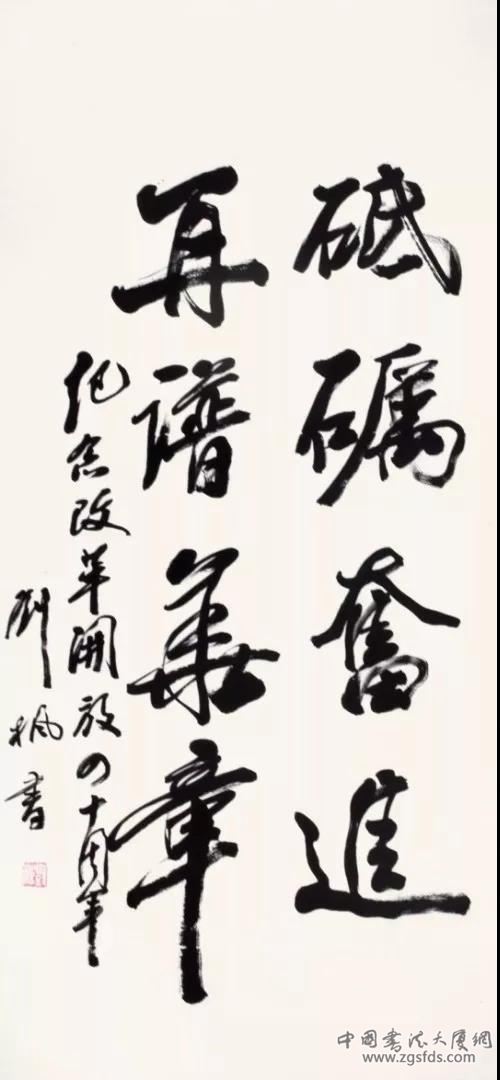 砥礪奮進
再譜華章
纪念改革開放四十周年
劉楓書
中国書法大厦網
www.zgsfds.com